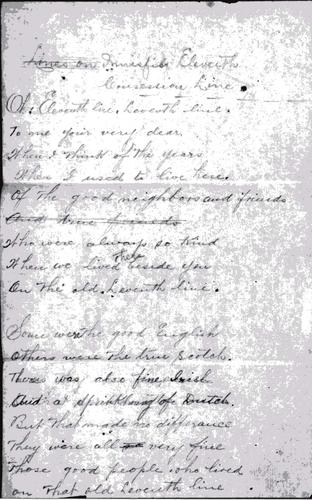 Lines on Innisfil Eleventh
Concession Line
Oh, Eleventh line, Leventh line.
To me your very dear.
When I think of the years
When I used to live here.
Of the good neighbors and friends
And true friends
Who were always so kind
When we lived there beside you
On the old Leventh line.
Some were the good English
Others were the true Scotch.
There was also fine Irish
And a sprinkling of Dutch.
But that made no difference
They were all very fine
Those good people who lived
on that old Leventh line